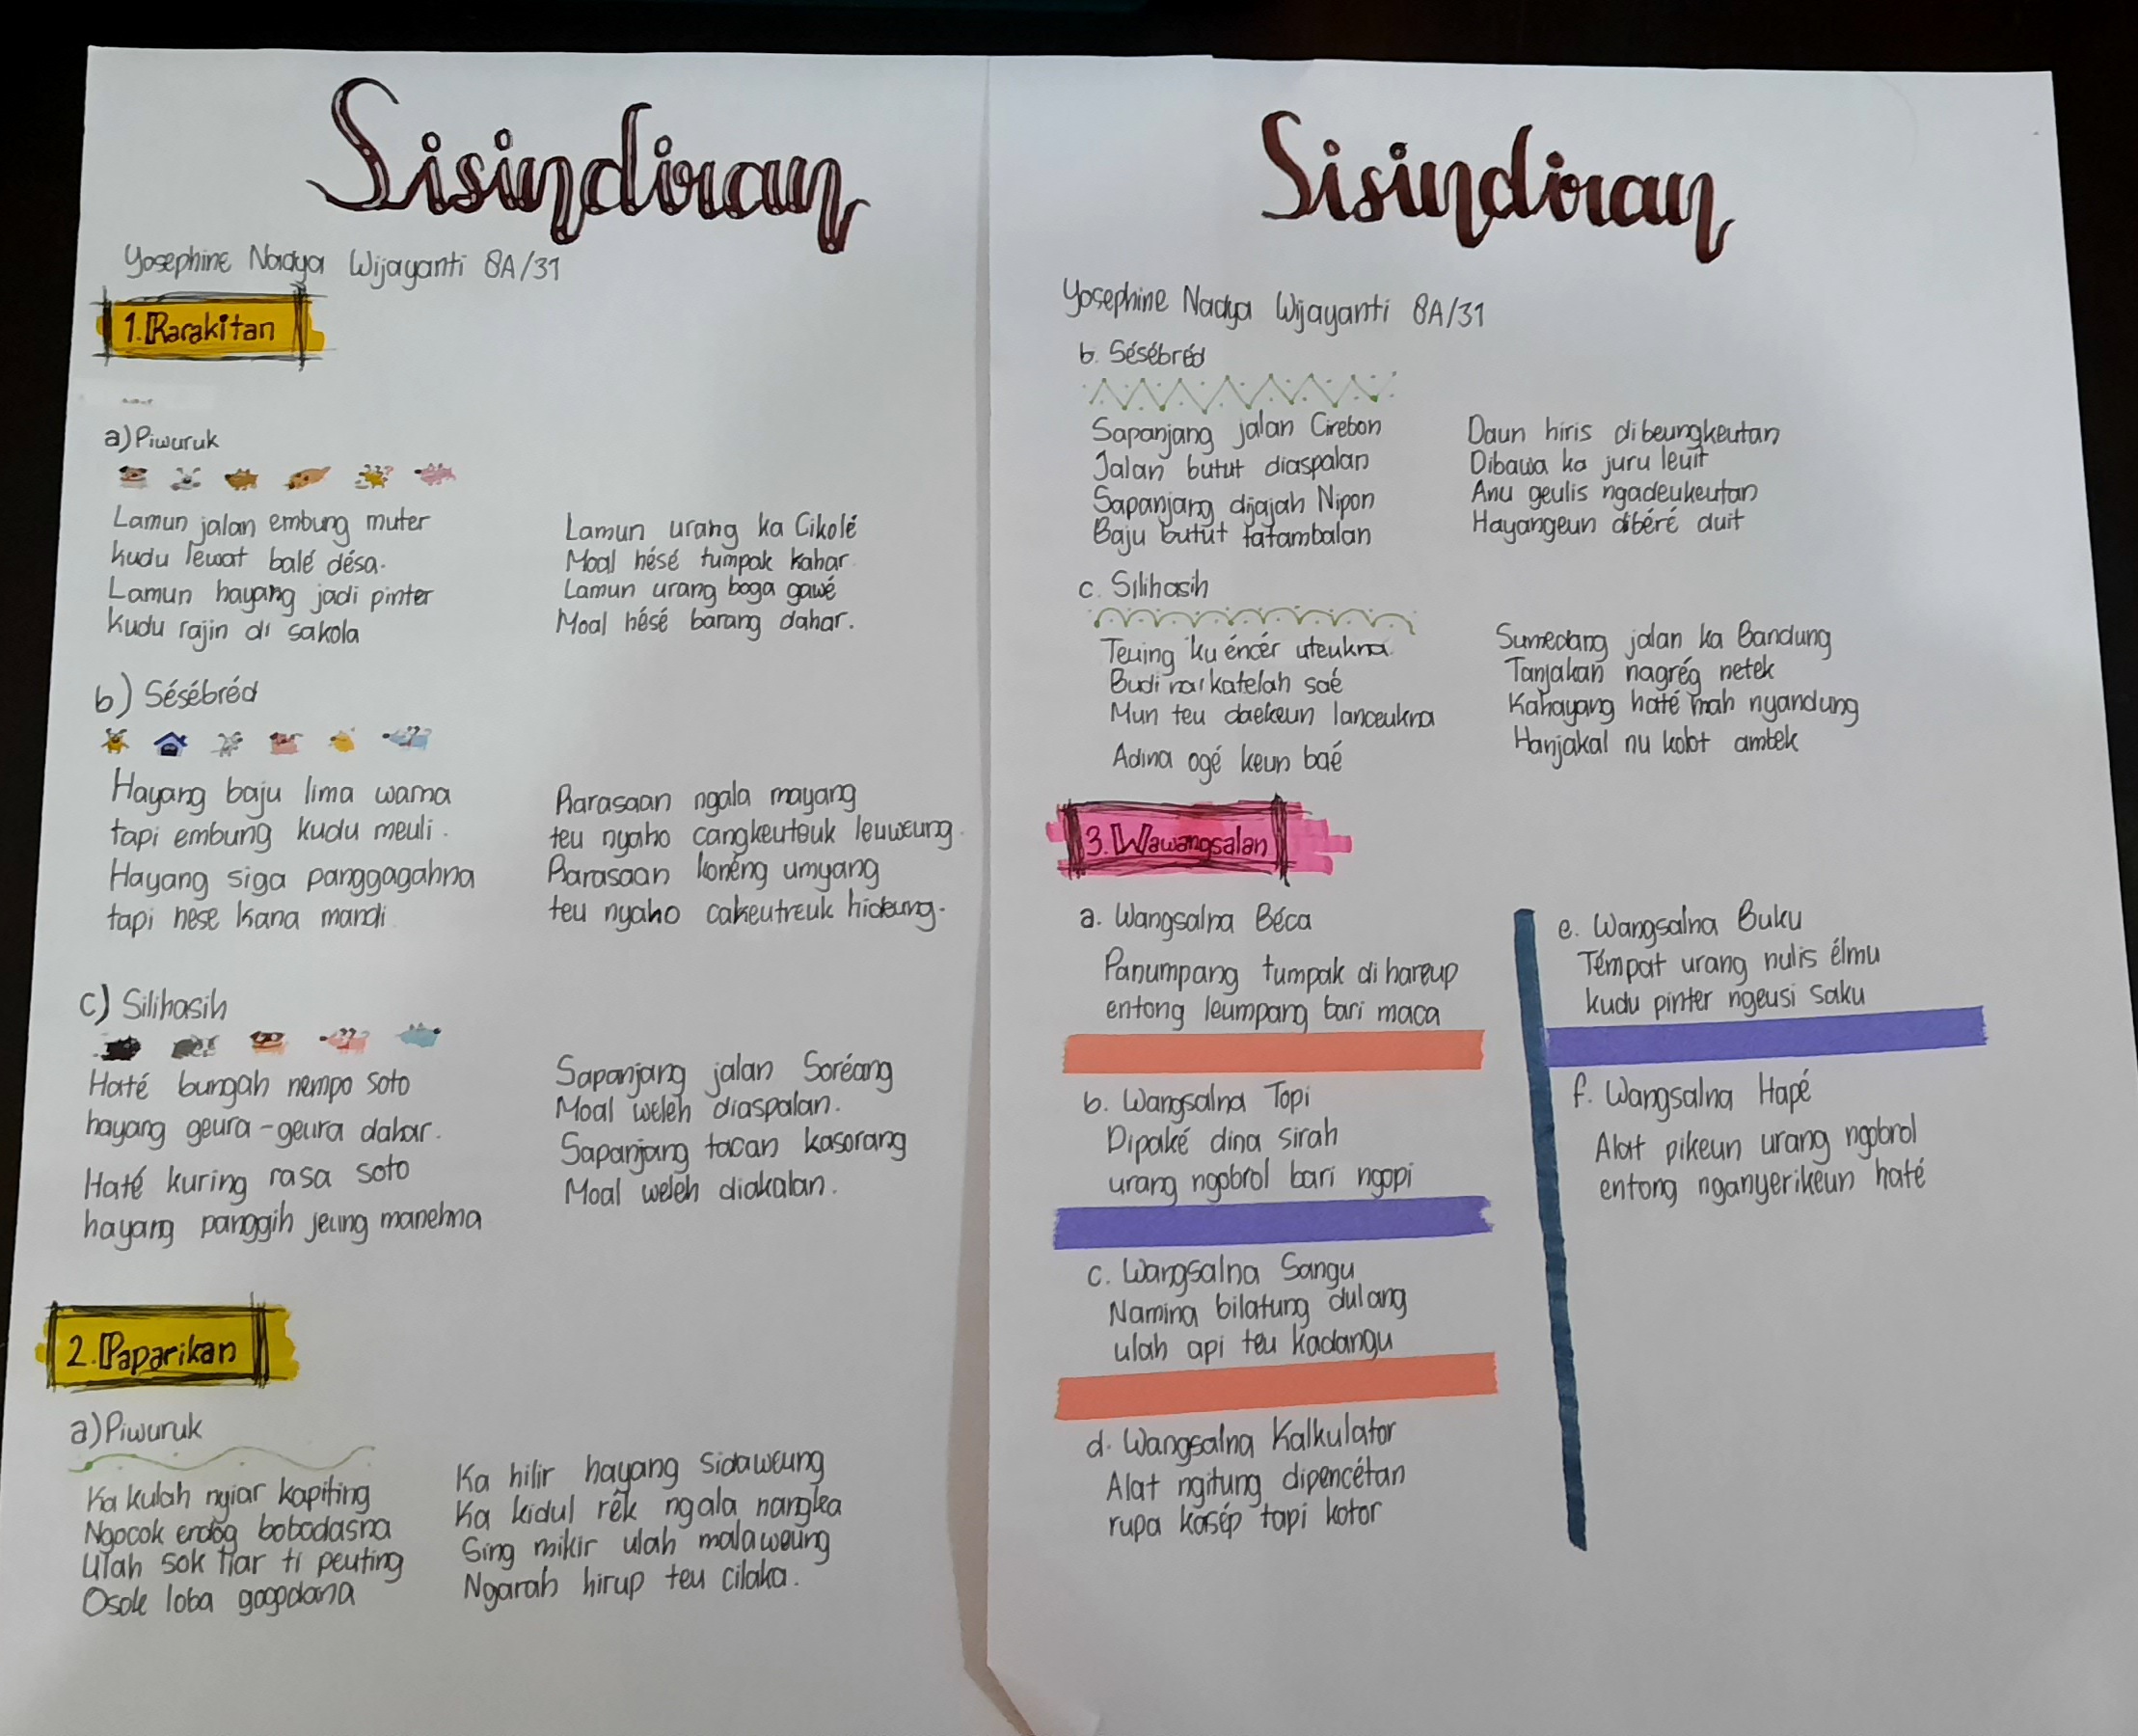 Sisindiran
Yosephine Nadya Wijayanti 8A/31
1. Rarakitan
a) Piwuruk
Lamun jalan embung muter
kudu lewat balé désa.
Lamun hayang jadi pinter
kudu rajin di sakola
Lamun urang ka Cikolé
Moal hésé tumpak kahar.
Lamun urang boga gawé
Moal hésé barang dahar.
b) Sésébréd
Hayang baju lima warna
tapi embung kudu meuli.
Hayang siga panggagahna
tapi hese kana mandi.
Rarasaan ngala mayang
teu nyaho cangkeuteuk leuweung.
Rarasaan konéng umyang
teu nyaho cakeutreuk hideung.
c) Silihasih
Haté bungah nempo soto
hayang geura-geura dahar.
Haté kuring rasa soto
hayang panggih jeung manehna
Sapanjang jalan Soréang
Moal weleh diaspalan.
Sapanjang tacan kasorang
Moal weleh diakalan.
2. Paparikan
a) Piwuruk
Ka kulah nyiar kapiting
Ngocok endog bobodasna
Ulah sok tiar ti peuting
Osok loba gogodana
Ka hilir hayang sidaweung
Ka kidul rék ngala nangka
Sing mikir ulah malaweung
Ngarah hirup teu cilaka.
Sisindiran
Yosephine Nadya Wijayanti 8A/31
b. Sésébréd
Sapanjang jalan Cirebon
Jalan butut diaspalan
Sapanjang dijajah Nipon
Baju butut tatambalan
Daun hiris dibeungkeutan
Dibawa ka juru leuit
Anu geulis ngadeukeutan
Hayangeun dibéré duit
c. Silihasih
Teuing ku éncér uteukna
Budi na katelah saé
Mun teu daekeun lanceukna
Adina ogé keun baé
Sumedang jalan ka Bandung
Tanjakan nagrég netek
Kahayang haté mah nyandung
Hanjakal nu kolot ambek
3. Wawangsalan
a. Wangsalna Béca
Panumpang tumpak di hareup
entong leumpang bari maca
b. Wangsalna Topi
Dipaké dina sirah
urang ngobrol bari ngopi
c. Wangsalna Sangu
Namina bilatung dulang
ulah api teu kadangu
d. Wangsalna Kalkulator
Alat ngitung dipencétan
rupa kasép tapi kotor
e. Wangsalna Buku
Témpat urang nulis élmu
kudu pinter ngeusi saku
f. Wangsalna Hapé
Alat pikeun urang ngobrol
entong nganyerikeun haté